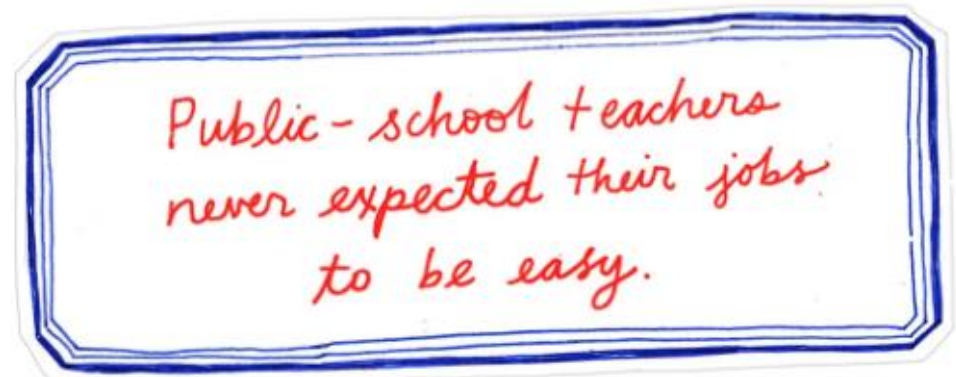 Public-school teachers
never expected their jobs
to be easy.